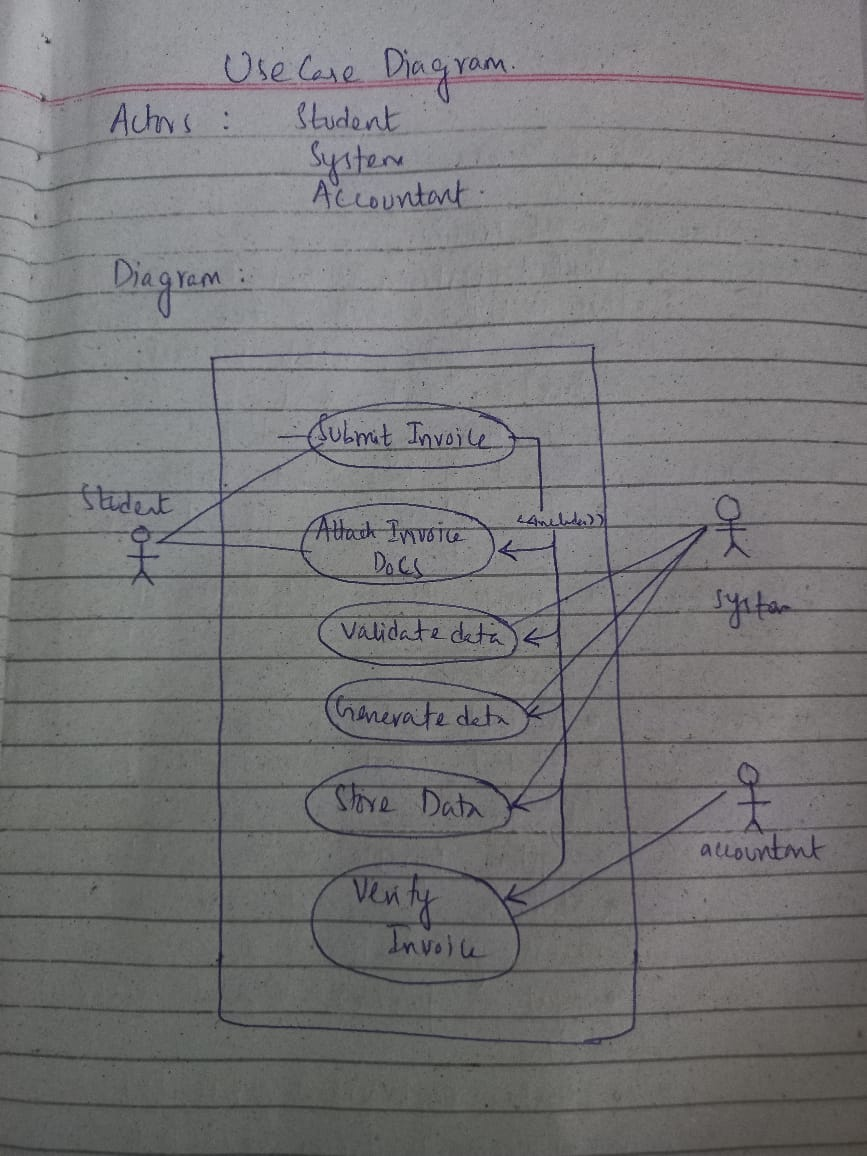 Use Case Diagram.
Actors : Student
System
Accountant.
Diagram :
Submit Invoice
Student
Attach Invoice
Docs
<<include>>
System
Validate data
Generate data
Store Data
accountant
Verify
Invoice